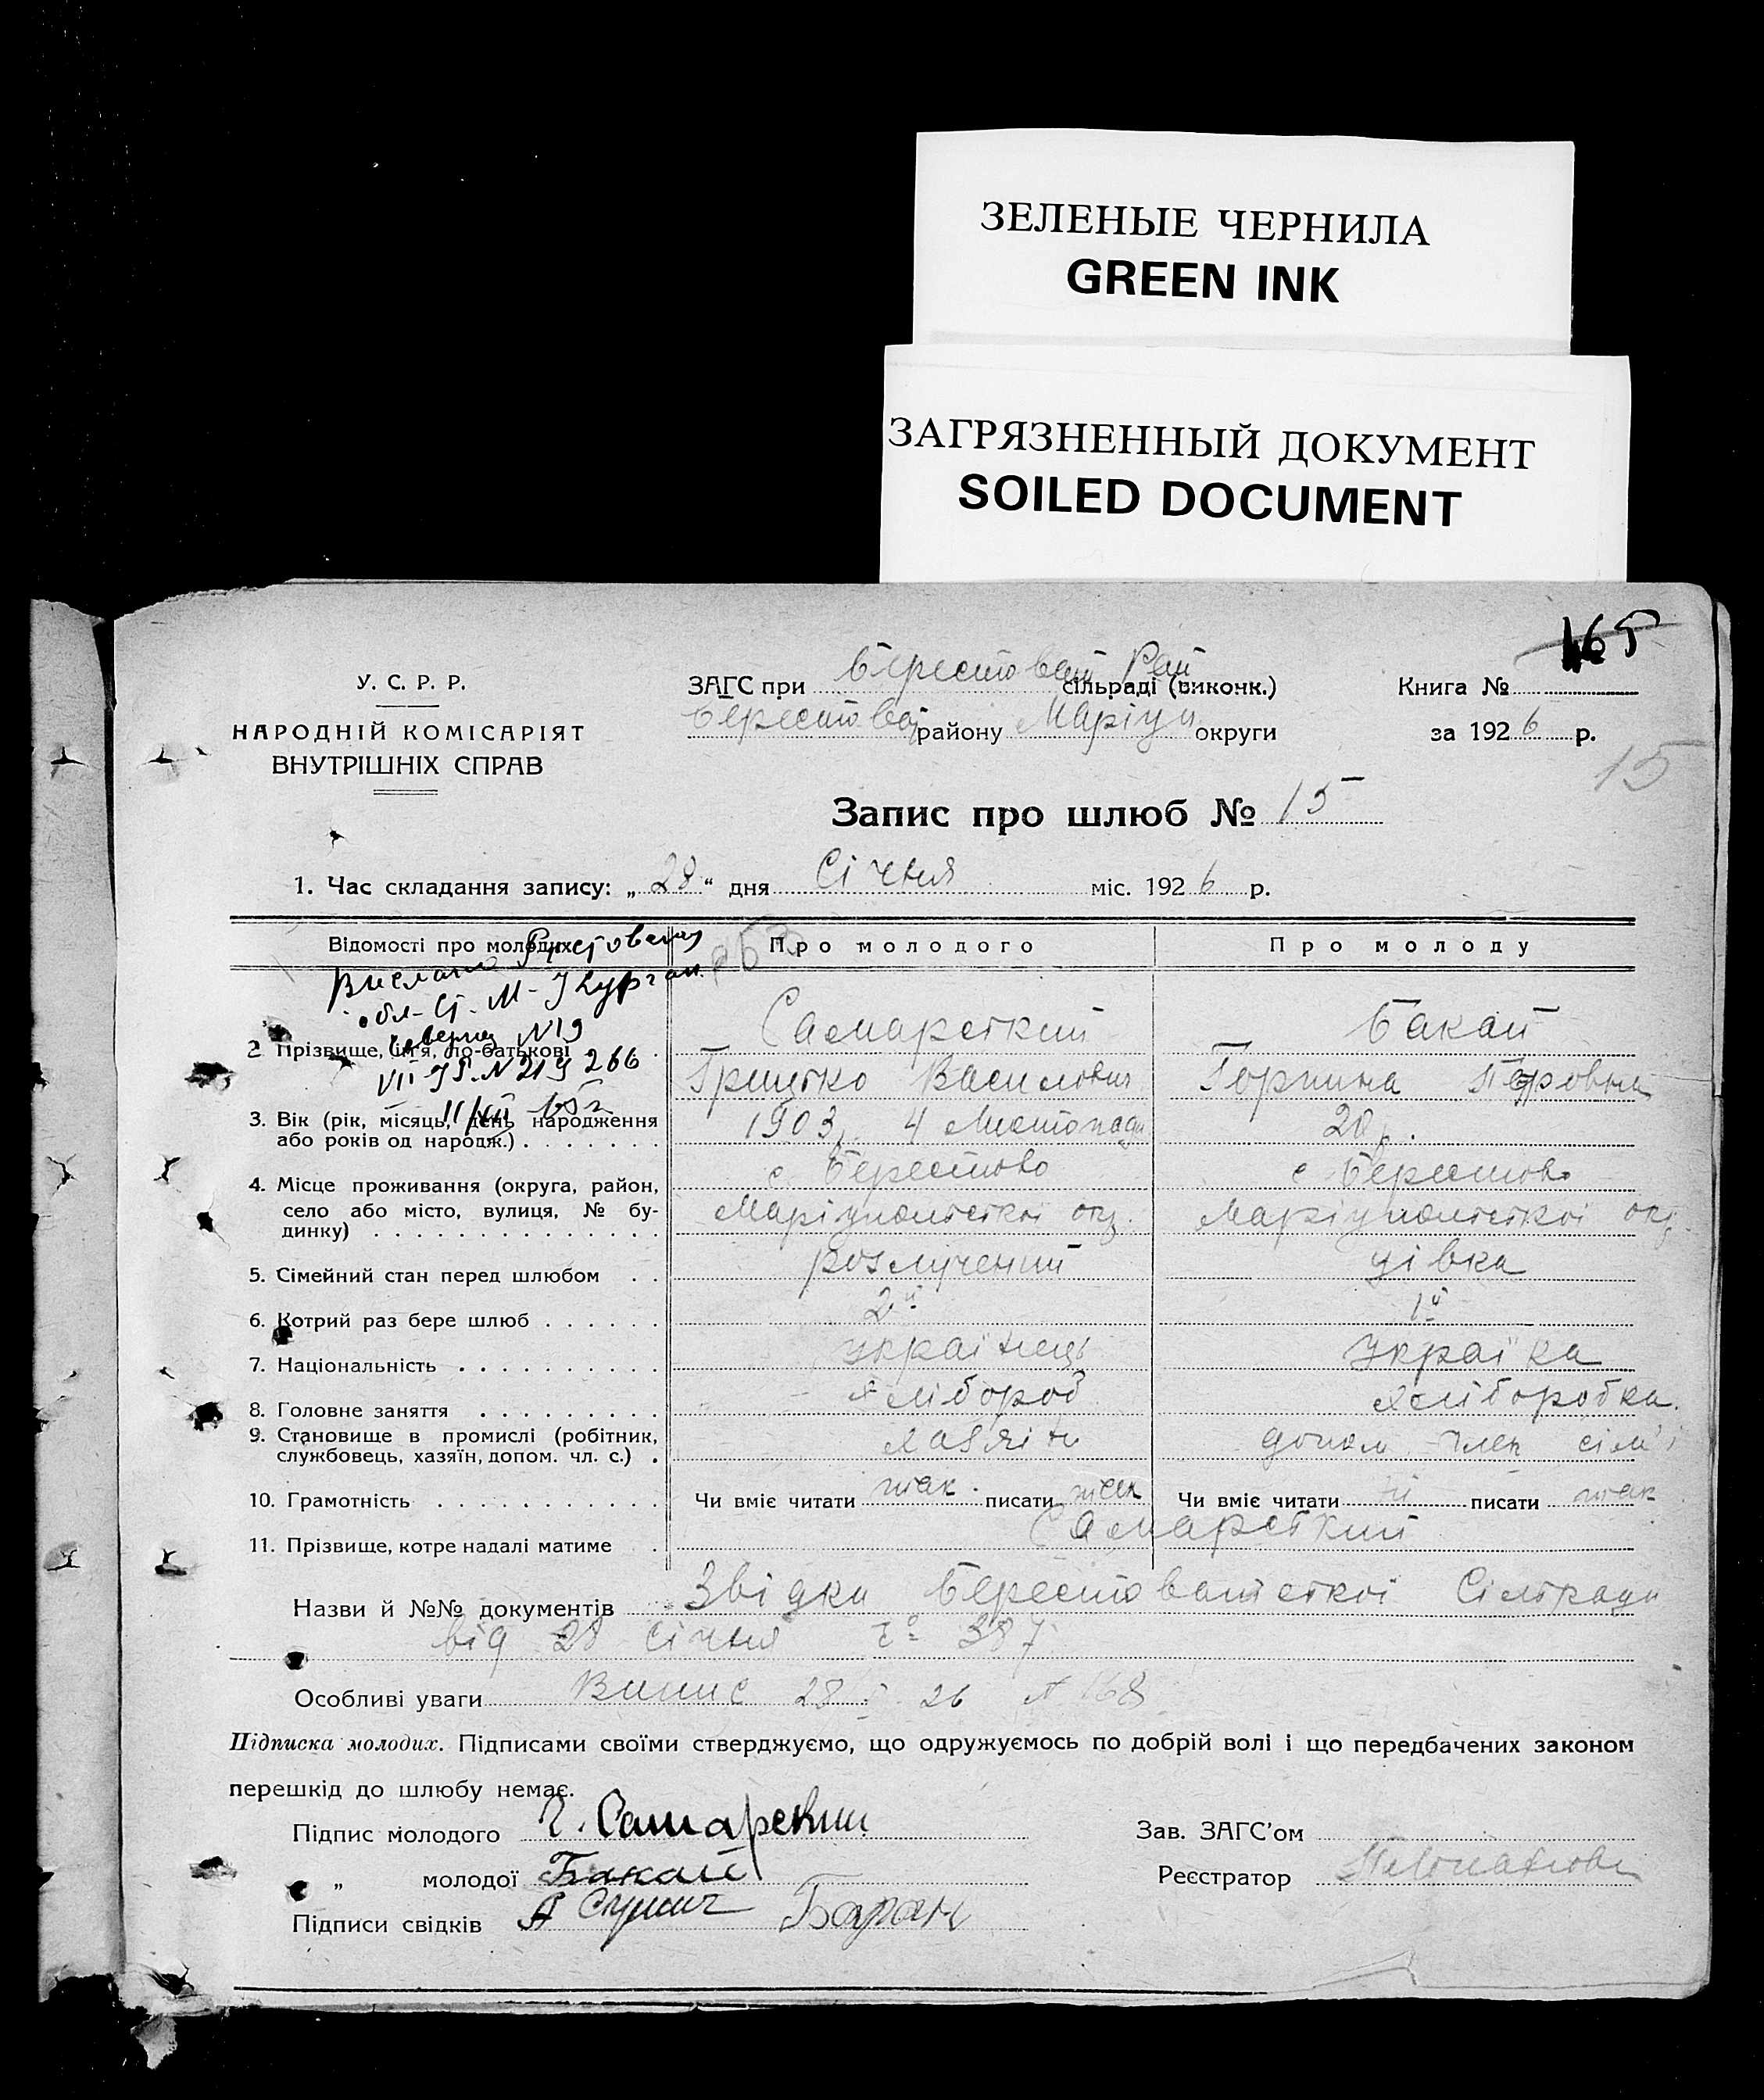 ЗЕЛЕНЫЕ ЧЕРНИЛА
GREEN INK
ЗАГРЯЗНЕННЫЙ ДОКУМЕНТ
SOILED DOCUMENT
165
У. С. Р. Р.
НАРОДНІЙ КОМІСАРІЯТ
ВНУТРІШНІХ СПРАВ
ЗАГС при Берестовет Рай сільраді (виконк.)
Берестовет району Маріуп округи
Книга №
за 1926 р.
15
Запис про шлюб № 15
1. Час складання запису: „28“ дня Січня міс. 1926 р.
Відомості про молодих
Про молодого
Про молоду
Выслано Ростовская
обл. ст. М-Курган
№19
VII ЯР №219266
2. Прізвище, ім'я, по-батькові
Самарський
Грицько Василович
Бакай
Горпина Петровна
3. Вік (рік, місяць, день народження
або років од народж.)
1903 р. 4 Листопада
20 р.
4. Місце проживання (округа, район,
село або місто, вулиця, № бу-
динку)
с Берестово
Маріупольської окр.
с Берестово
Маріупольської окр.
5. Сімейний стан перед шлюбом
розлучений
дівка
6. Котрий раз бере шлюб
2й
1й
7. Національність
Українець
Українка
8. Головне заняття
хлібороб
хліборобка.
9. Становище в промислі (робітник,
службовець, хазяїн, допом. чл. с.)
хазяїн
допом член сім'ї
10. Грамотність
Чи вміє читати так. писати так
Чи вміє читати писати так
11. Прізвище, котре надалі матиме
Самарський
Назви й №№ документів Звідки Берестоватської Сільради
від 28 Січня 387
Особливі уваги Випис 28 I 26 № 168
Підписка молодих. Підписами своїми стверджуємо, що одружуємось по добрій волі і що передбачених законом
перешкід до шлюбу немає.
Підпис молодого Г. Самарский
„ молодої Бакай
Підписи свідків Баран
Зав. ЗАГС'ом
Реєстратор